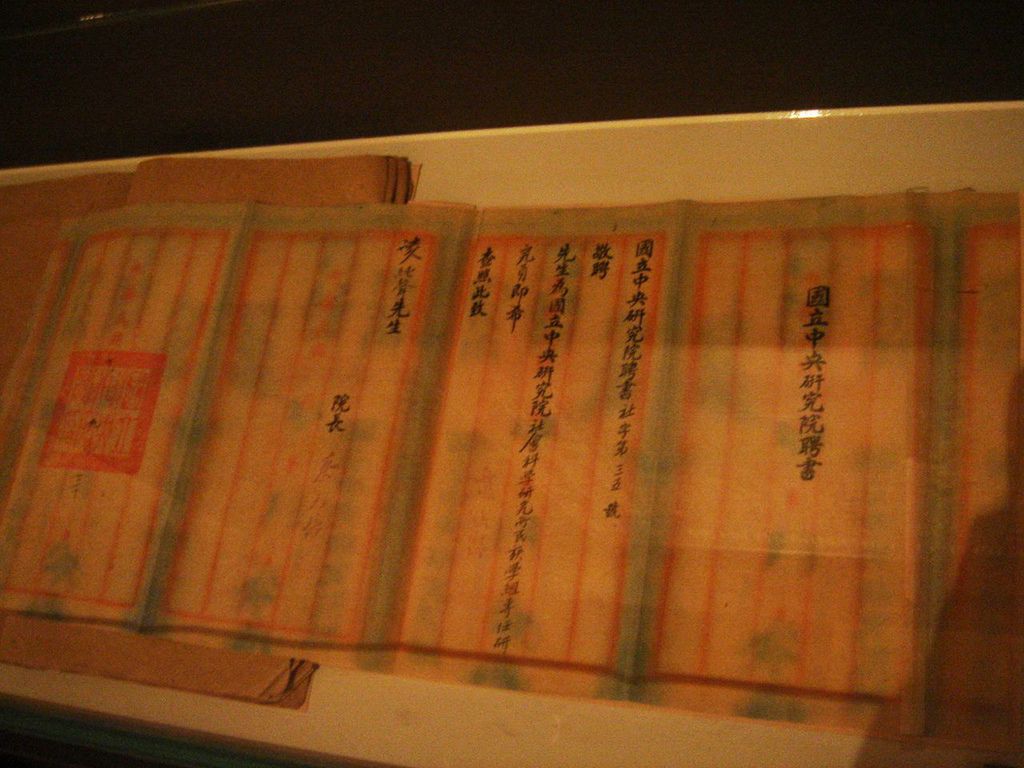 國立中央研究院聘書
國立中央研究院聘書社字第三五號
敬聘
先生為國立中央研究院社會科學研究所民族學組專任研
究員即希
查照此致
凌純聲先生
院長
九
三十